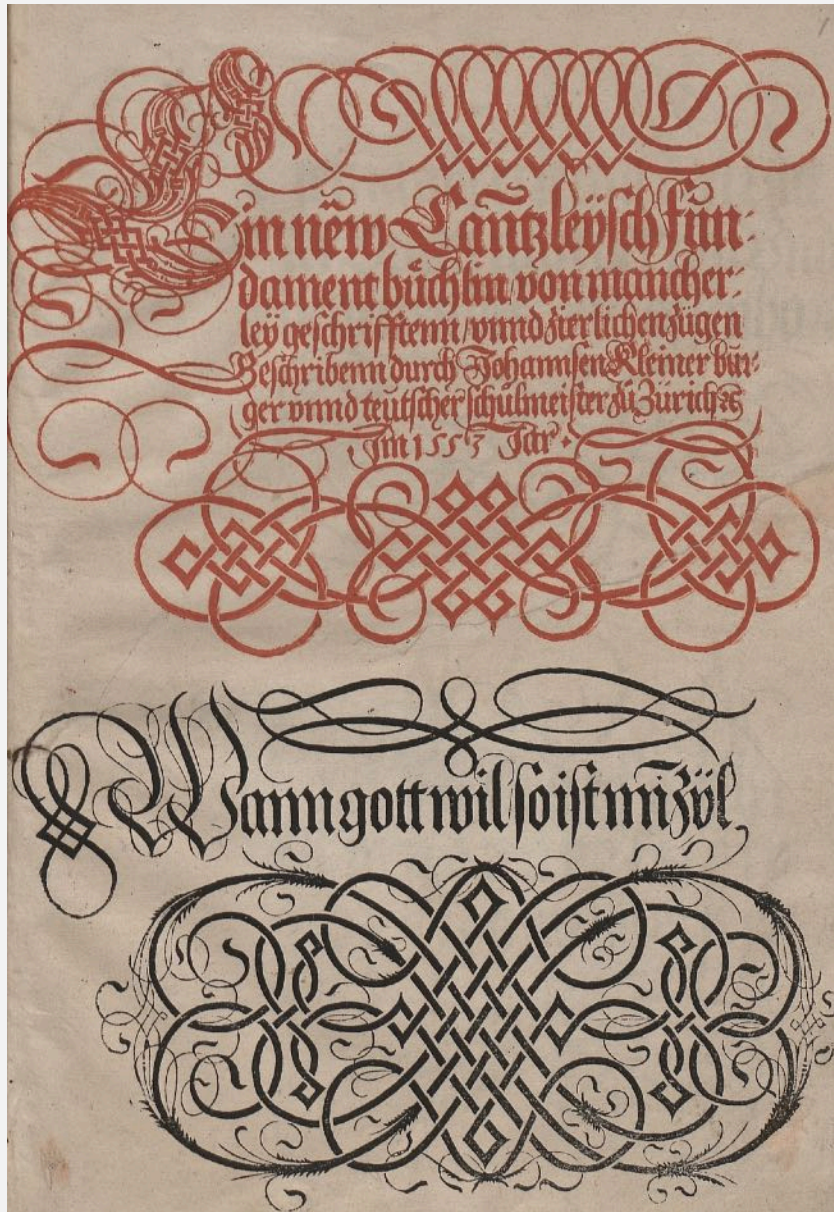 Ein nëw Cantzleÿsch fun-
dament büchlin / von mancher-
leÿ geschrifftenn / vnnd zierlichen zügen
Beschribenn durch Johannsen Kleiner bur-
ger vnnd teutscher schulmeister zů Zürich ꝛc
Im 1553 Jar.
Wann gott wil so ist min zÿl